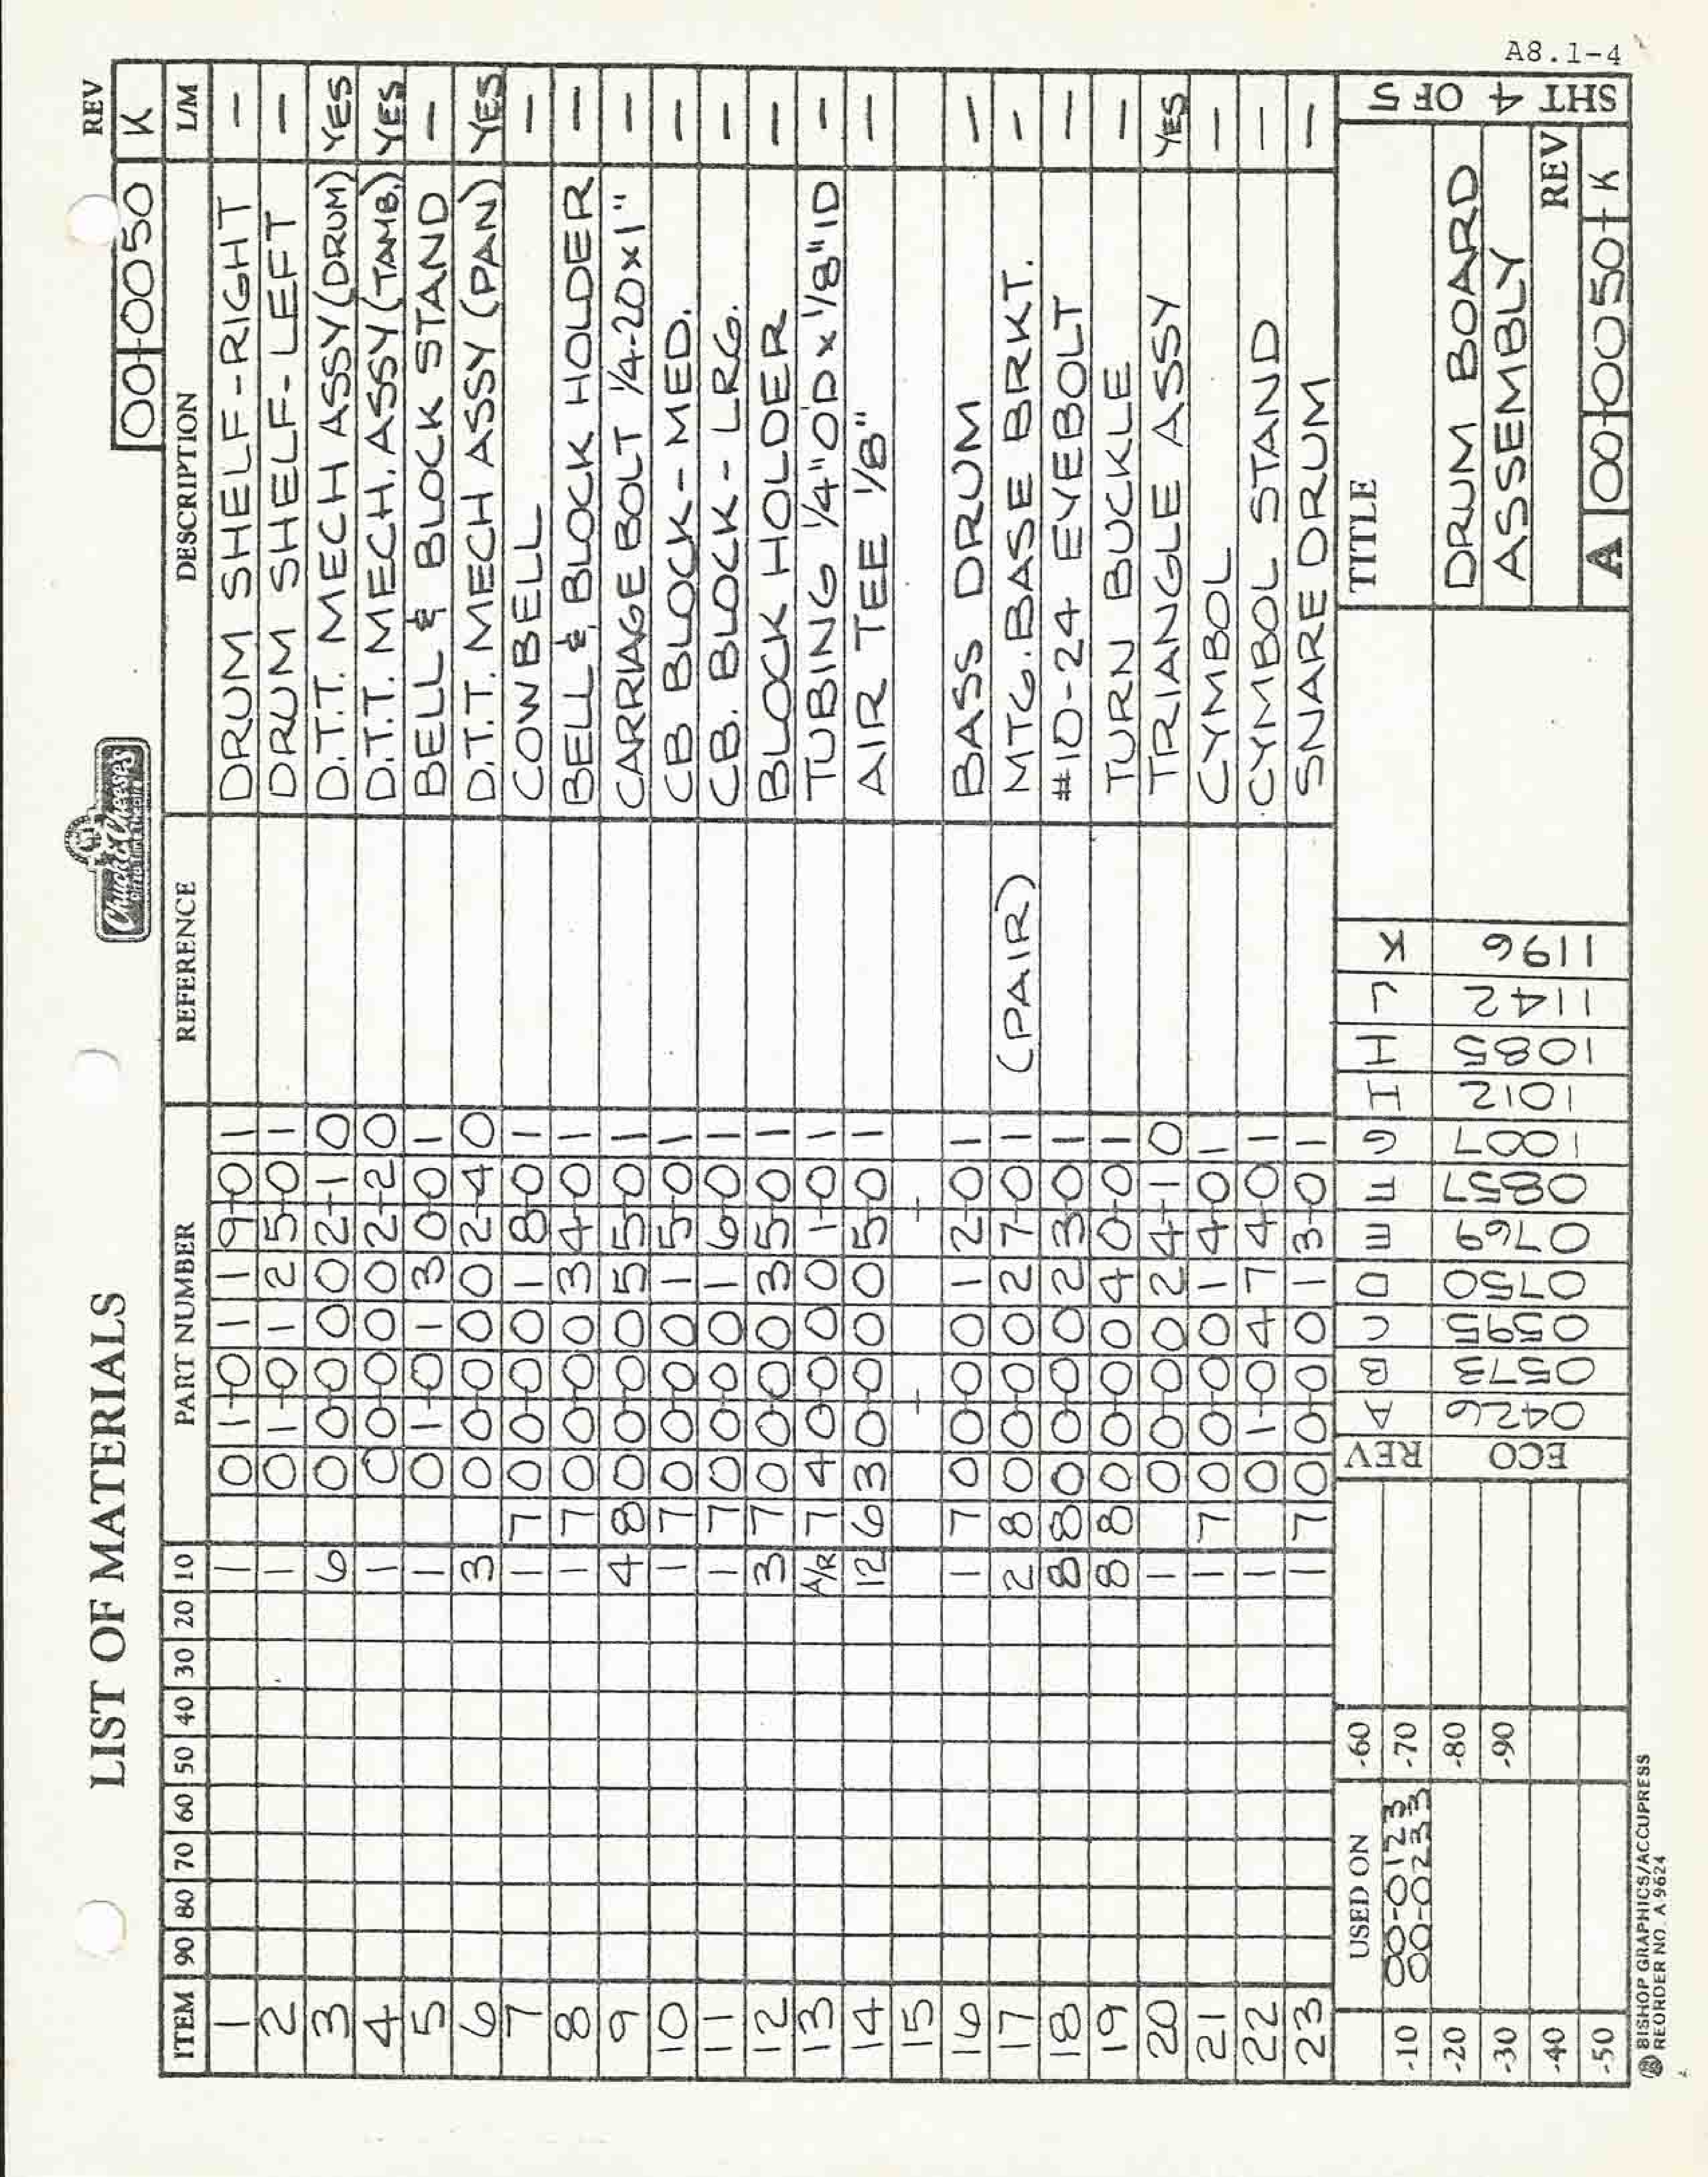 A8.1-4
LIST OF MATERIALS
Chuck E. Cheese's
PIZZA TIME THEATRE
REV
00-0050 K
ITEM 90 80 70 60 50 40 30 20 10 PART NUMBER REFERENCE DESCRIPTION L/M
1 1 01-0119-01 DRUM SHELF-RIGHT —
2 1 01-0125-01 DRUM SHELF-LEFT —
3 6 00-0002-10 D.T.T. MECH ASSY (DRUM) YES
4 1 00-0002-20 D.T.T. MECH. ASSY (TAMB.) YES
5 1 01-0130-01 BELL & BLOCK STAND —
6 3 00-0002-40 D.T.T. MECH ASSY (PAN) YES
7 1 700-0018-01 COWBELL —
8 1 700-0034-01 BELL & BLOCK HOLDER —
9 4 800-0055-01 CARRIAGE BOLT 1/4-20x1" —
10 1 700-0015-01 CB BLOCK-MED. —
11 1 700-0016-01 CB. BLOCK-LRG. —
12 3 700-0035-01 BLOCK HOLDER —
13 A/R 740-0001-01 TUBING 1/4"OD x 1/8"ID —
14 12 630-0005-01 AIR TEE 1/8" —
15 - -
16 1 700-0012-01 BASS DRUM —
17 2 800-0027-01 (PAIR) MTG. BASE BRKT. —
18 8 800-0023-01 #10-24 EYEBOLT —
19 8 800-0040-01 TURN BUCKLE —
20 1 00-0024-10 TRIANGLE ASSY YES
21 1 700-0014-01 CYMBOL —
22 1 01-0474-01 CYMBOL STAND —
23 1 700-0013-01 SNARE DRUM —
USED ON
-10 00-0123
00-0233
-20
-30
-40
-50
-60
-70
-80
-90
REV A B C D E F G I H J K
ECO 0426 0573 0595 0750 0769 0857 1007 1012 1085 1142 1196
TITLE
DRUM BOARD
ASSEMBLY
REV
A 00-0050- K
SHT 4 OF 5
BISHOP GRAPHICS/ACCUPRESS
REORDER NO. A 9624